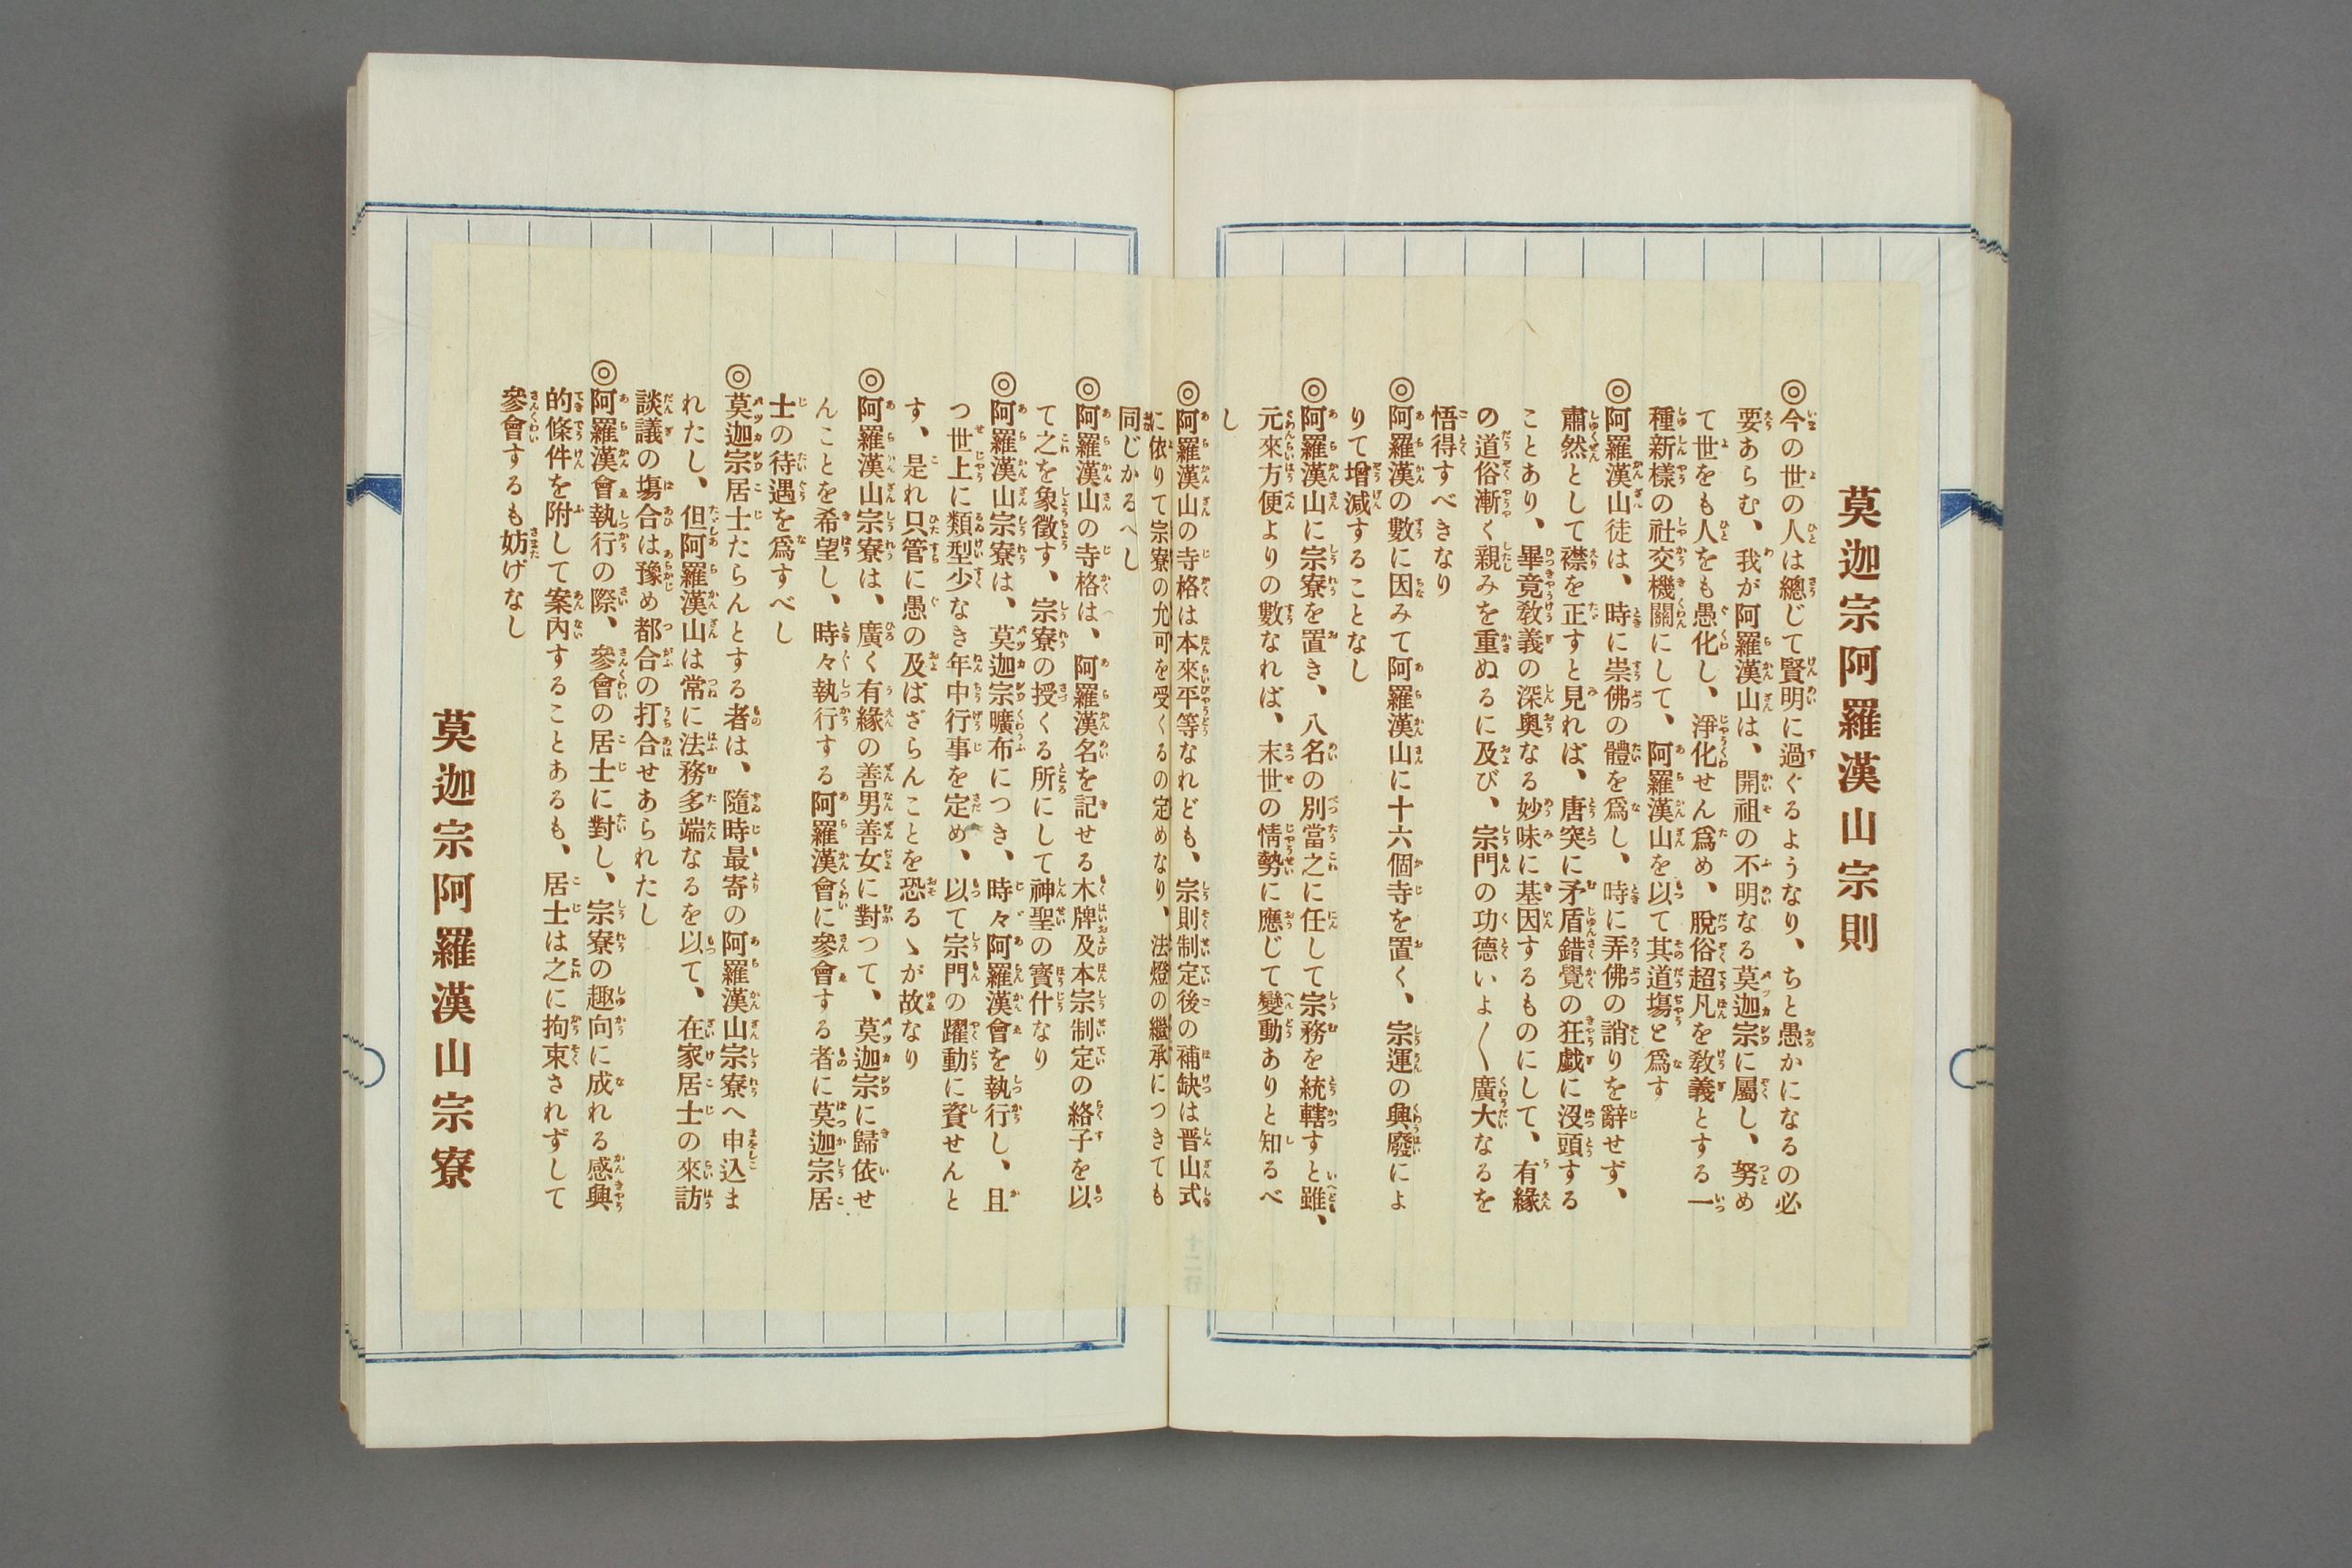 莫迦宗阿羅漢山宗則
◎今の世の人は總じて賢明に過ぐるようなり、ちと愚かになるの必
要あらむ、我が阿羅漢山は、開祖の不明なる莫迦宗に屬し、努め
て世をも人をも愚化し、淨化せん爲め、脫俗超凡を敎義とする一
種新樣の社交機關にして、阿羅漢山を以て其道塲と爲す
◎阿羅漢山徒は、時に崇佛の體を爲し、時に弄佛の誚りを辭せず、
肅然として襟を正すと見れば、唐突に矛盾錯覺の狂戱に沒頭する
ことあり、畢竟敎義の深奧なる妙味に基因するものにして、有緣
の道俗漸く親みを重ぬるに及び、宗門の功德いよ〱廣大なるを
悟得すべきなり
◎阿羅漢の數に因みて阿羅漢山に十六個寺を置く、宗運の興廢によ
りて增減することなし
◎阿羅漢山に宗寮を置き、八名の別當之に任して宗務を統轄すと雖、
元來方便よりの數なれば、末世の情勢に應じて變動ありと知るべ
し
◎阿羅漢山の寺格は本來平等なれども、宗則制定後の補缺は晋山式
に依りて宗寮の允可を受くるの定めなり、法燈の繼承につきても
同じかるへし
◎阿羅漢山の寺格は、阿羅漢名を記せる木牌及本宗制定の絡子を以
て之を象徵す、宗寮の授くる所にして神聖の寳什なり
◎阿羅漢山宗寮は、莫迦宗曠布につき、時々阿羅漢會を執行し、且
つ世上に類型少なき年中行事を定め、以て宗門の躍動に資せんと
す、是れ只管に愚の及ばざらんことを恐るゝが故なり
◎阿羅漢山宗寮は、廣く有緣の善男善女に對つて、莫迦宗に歸依せ
んことを希望し、時々執行する阿羅漢會に參會する者に莫迦宗居
士の待遇を爲すべし
◎莫迦宗居士たらんとする者は、隨時最寄の阿羅漢山宗寮へ申込ま
れたし、但阿羅漢山は常に法務多端なるを以て、在家居士の來訪
談議の塲合は豫め都合の打合せあられたし
◎阿羅漢會執行の際、參會の居士に對し、宗寮の趣向に成れる感興
的條件を附して案內することあるも、居士は之に拘束されずして
參會するも妨げなし
莫迦宗阿羅漢山宗寮